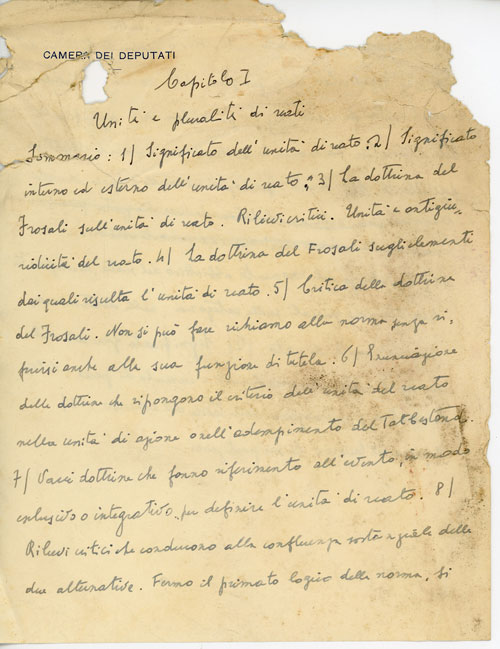 CAMERA DEI DEPUTATI
Capitolo I
Unità e pluralità di reati
Sommario: 1/ Significato dell'unità di reato. 2/ Significato
interno ed esterno dell'unità di reato. 3/ La dottrina del
Frosali sull'unità di reato. Rilievi critici. Unità e antigiu-
ridicità del reato. 4/ La dottrina del Frosali sugli elementi
dai quali risulta l'unità di reato. 5/ Critica della dottrina
del Frosali. Non si può fare richiamo alla norma senza ri-
ferirsi anche alla sua funzione di tutela. 6/ Enunciazione
delle dottrine che ripongono il criterio dell'unità del reato
nella unità di azione o nell'adempimento del Tatbestand.
7/ Varie dottrine che fanno riferimento all'evento, in modo
esclusivo o integrativo, per definire l'unità di reato. 8/
Rilievi critici che conducono alla confluenza delle
due alternative. Fermo il primato logico della norma, si